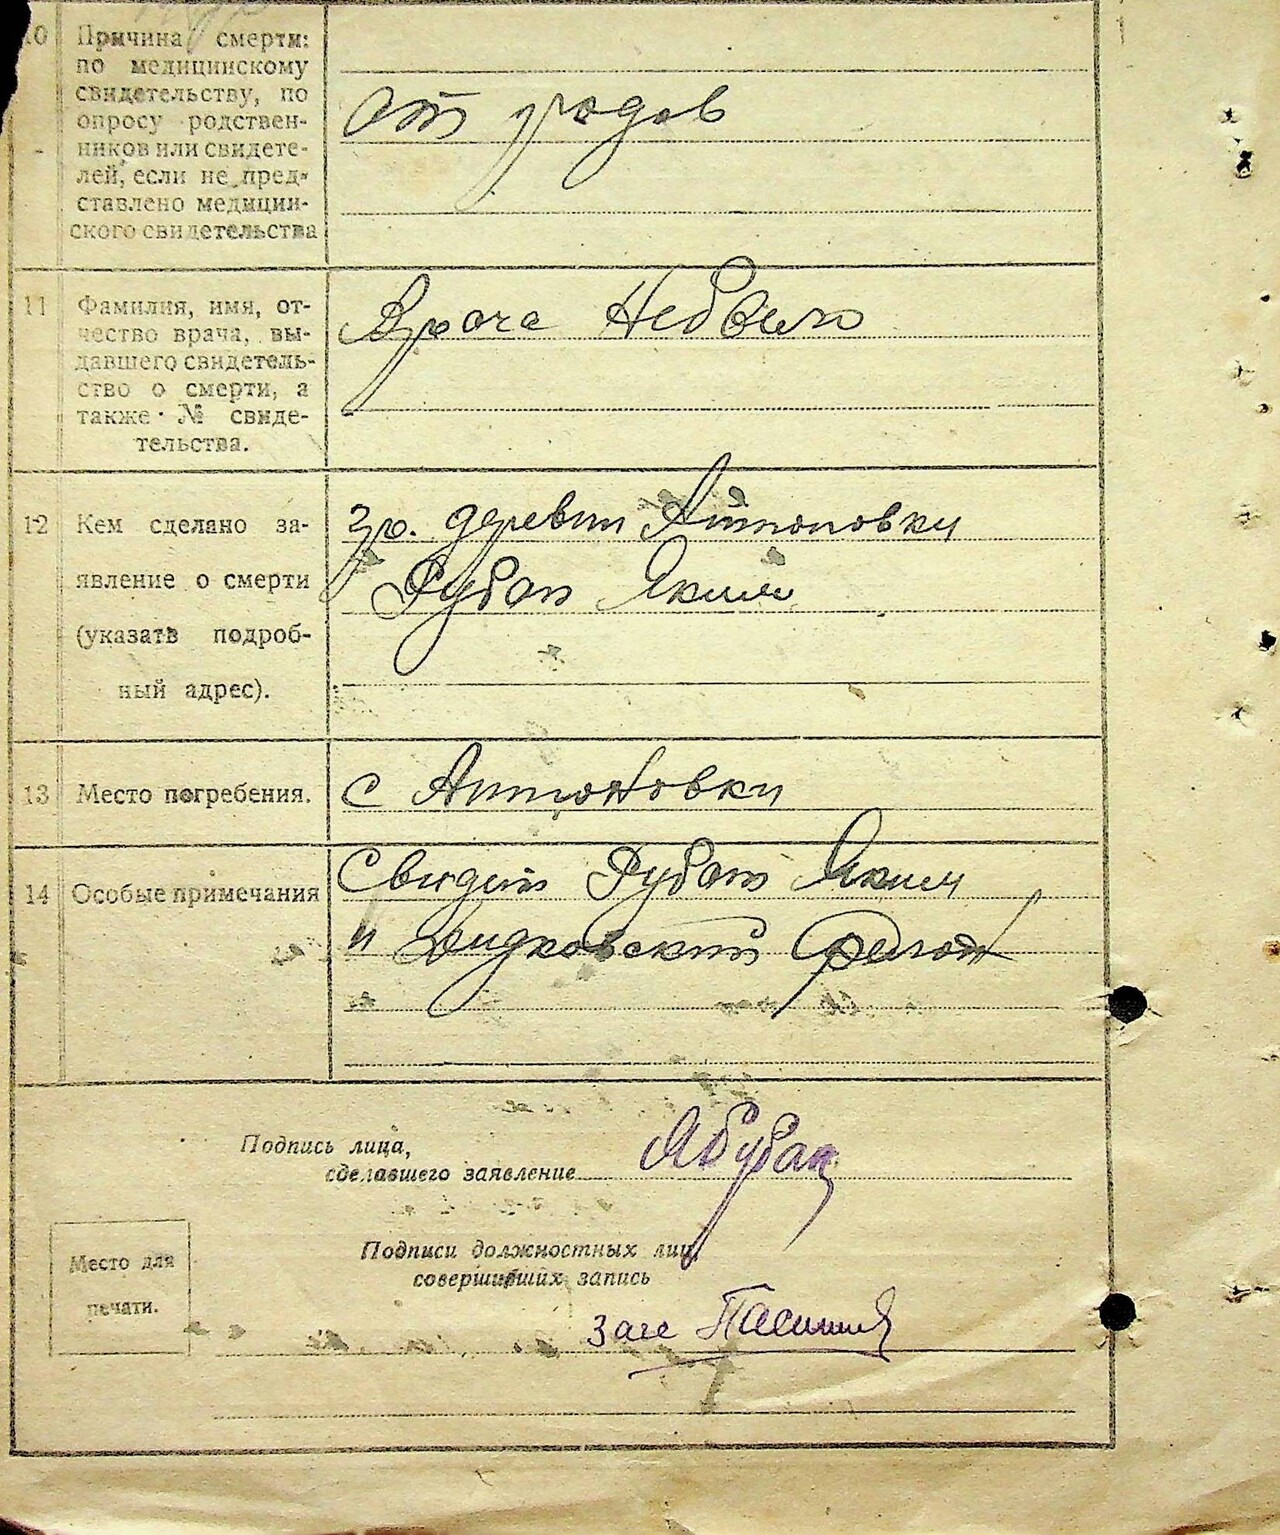 10 Причина смерти:
по медицинскому
свидетельству, по
опросу родствен-
ников или свидете-
лей, если не пред-
ставлено медицин-
ского свидетельства
от родов
11 Фамилия, имя, от-
чество врача, вы-
давшего свидетель-
ство о смерти, а
также № свиде-
тельства.
Врача Небыло
12 Кем сделано за-
явление о смерти
(указать подроб-
ный адрес).
гр. деревни Антоновки
Рубан Яким
13 Место погребения.
с Антоновки
14 Особые примечания
Свидет Рубан Яким
и Дидковский
Подпись лица,
сделавшего заявление
Подписи должностных лиц,
совершивших запись
Место для
печати.